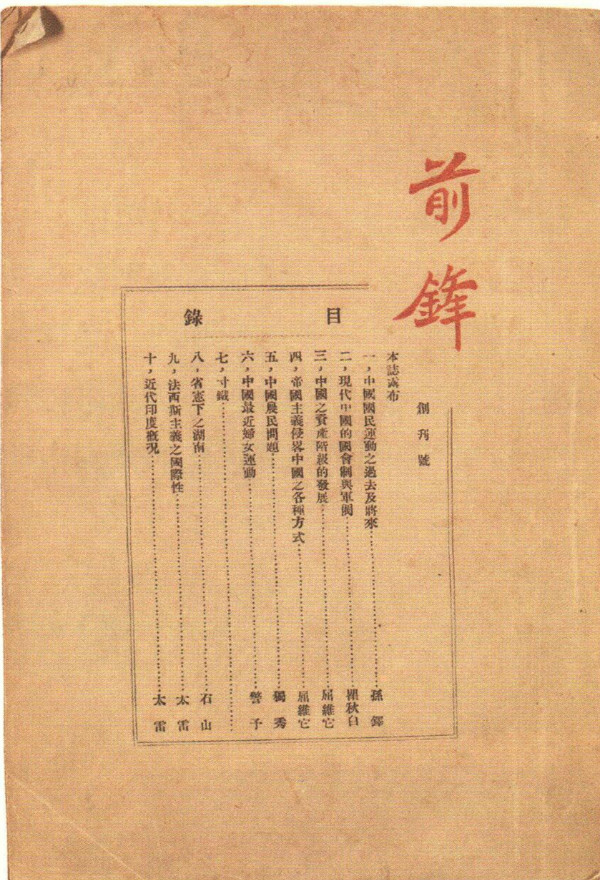 前鋒
創刊號
目錄
本誌露布
一，中國國民運動之過去及將來⋯⋯孫鐸
二，現代中國的國會制與軍閥⋯⋯瞿秋白
三，中國之資產階級的發展⋯⋯屈維它
四，帝國主義侵畧中國之各種方式⋯⋯屈維它
五，中國農民問題⋯⋯獨秀
六，中國最近婦女運動⋯⋯警予
七，寸鐵⋯⋯
八，省憲下之湖南⋯⋯石山
九，法西斯主義之國際性⋯⋯太雷
十，近代印度概況⋯⋯太雷